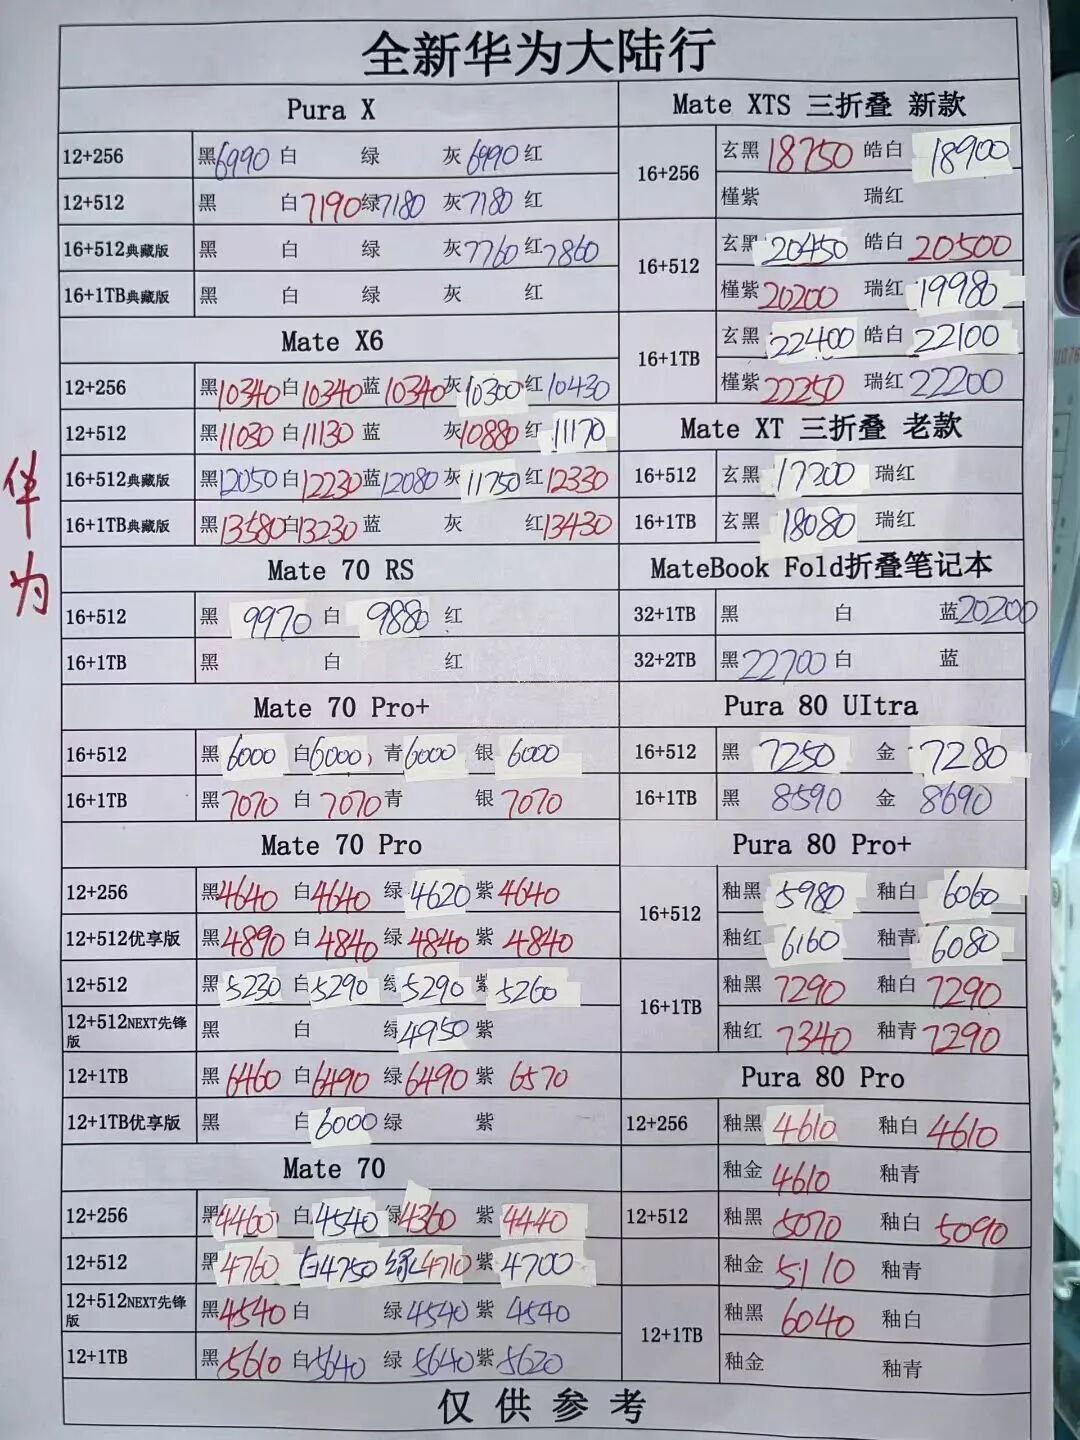 全新华为大陆行
Pura X
12+256 黑6990 白 绿 灰6990 红
12+512 黑 白7190 绿7180 灰7180 红
16+512典藏版 黑 白 绿 灰7760 红7860
16+1TB典藏版 黑 白 绿 灰 红
Mate X6
12+256 黑10340 白10340 蓝10340 灰10300 红10430
12+512 黑11030 白11130 蓝 灰10880 红11170
16+512典藏版 黑12050 白12230 蓝12080 灰11750 红12330
16+1TB典藏版 黑13580 白13230 蓝 灰 红13430
Mate 70 RS
16+512 黑 9970 白 9880 红
16+1TB 黑 白 红
Mate 70 Pro+
16+512 黑 6000 白6000 青6000 银 6000
16+1TB 黑7070 白 7070 青 银 7070
Mate 70 Pro
12+256 黑4640 白4640 绿4620 紫4640
12+512优享版 黑4890 白4840 绿4840 紫4840
12+512 黑5230 白5290 绿5290 紫5260
12+512NEXT先锋版 黑 白 绿4950 紫
12+1TB 黑6460 白6490 绿6490 紫6570
12+1TB优享版 黑 白6000 绿 紫
Mate 70
12+256 黑4460 白4540 绿4360 紫4440
12+512 黑4760 白4750 绿4710 紫4700
12+512NEXT先锋版 黑4540 白 绿4540 紫4540
12+1TB 黑5610 白5640 绿5640 紫5620
Mate XTS 三折叠 新款
16+256 玄黑18750 皓白18900
槿紫 瑞红
16+512 玄黑20450 皓白20500
槿紫20200 瑞红19980
16+1TB 玄黑22400 皓白22100
槿紫22250 瑞红22200
Mate XT 三折叠 老款
16+512 玄黑17200 瑞红
16+1TB 玄黑18080 瑞红
MateBook Fold折叠笔记本
32+1TB 黑 白 蓝20200
32+2TB 黑22700 白 蓝
Pura 80 UItra
16+512 黑 7250 金 7280
16+1TB 黑 8590 金 8690
Pura 80 Pro+
16+512 釉黑5980 釉白6060
釉红6160 釉青6080
16+1TB 釉黑7290 釉白7290
釉红7340 釉青7290
Pura 80 Pro
12+256 釉黑4610 釉白4610
釉金4610 釉青
12+512 釉黑5070 釉白5090
釉金5110 釉青
12+1TB 釉黑6040 釉白
釉金 釉青
仅供参考
伴
为